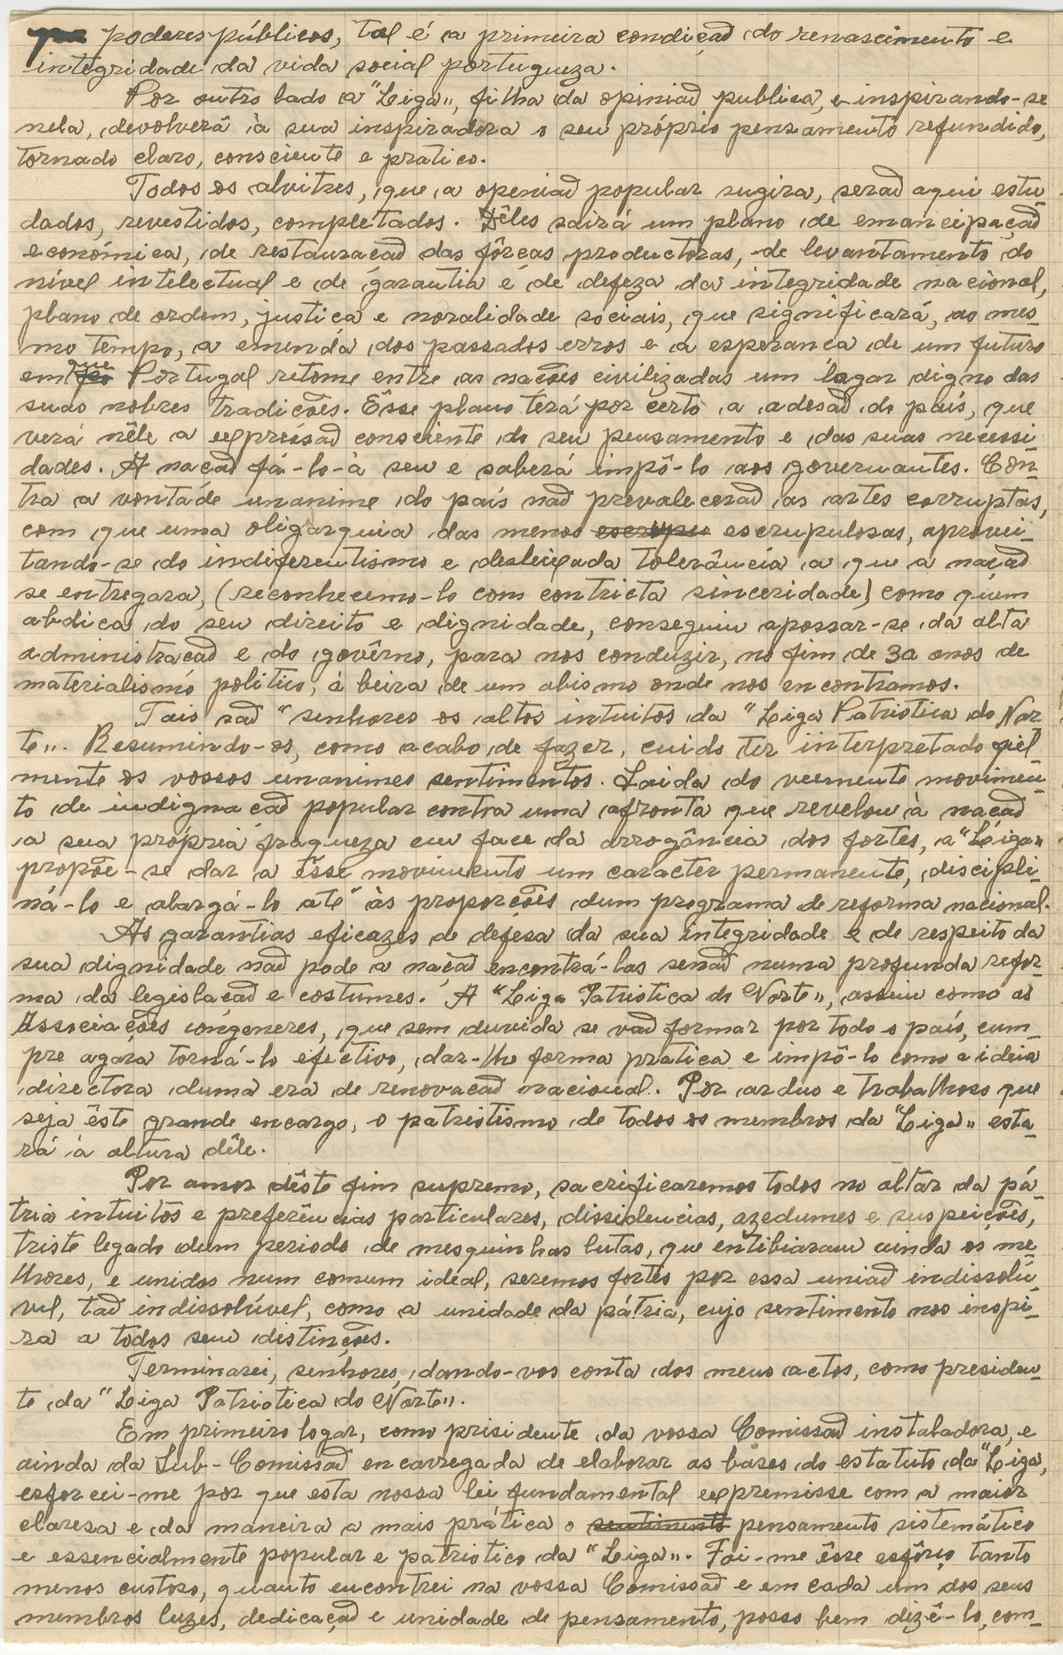 poderes públicos, tal é a primeira condição do renascimento e
integridade da vida social portugueza.
Por outro lado a "Liga", filha da opinião publica, e inspirando-se
nela, devolverá à sua inspiradora o seu próprio pensamento refundido,
tornado claro, consciente e pratico.
Todos os alvitres, que a openião popular sugira, serão aqui estu-
dados, revestidos, completados. Dêles sairá um plano de emancipação
económica, de restauração das fôrças productoras, de levantamento do
nível intelectual e de garantia e de defeza da integridade nacional,
plano de ordem, justiça e moralidade sociais, que significará, ao mes-
mo tempo, a emenda dos passados erros e a esperança de um futuro
em que Portugal retome entre as nações civilizadas um logar digno das
suas nobres tradições. Êsse plano terá por certo a adesão do país, que
verá nêle a expressão consciente do seu pensamento e das suas necessi
dades. A nação fá-lo-à seu e saberá impô-lo aos governantes. Con-
tra a vontade unanime do país não prevalecerão as artes corruptas,
com que uma oligarquia das menos escrupulosas, aprovei-
tando-se do indiferentismo e desleixada tolerância a que a nação
se entregara, (reconhecemo-lo com contricta sinceridade) como quem
abdica do seu direito e dignidade, conseguiu apossar-se da alta
administração e do govêrno, para nos conduzir, no fim de 30 anos de
materialismo politico, à beira de um abismo onde nos encontramos.
Tais são "senhores os altos intuitos da "Liga Patriotica do Nor
te". Resumindo-os, como acabo de fazer, cuido ter interpretado fiel
mente os vossos unanimes sentimentos. Saida do veemente movimen-
to de indignação popular contra uma afronta que revelou à nação
a sua própria fraqueza em face da arrogância dos fortes, a "Liga"
propõe-se dar a êsse movimento um caracter permanente, discipli-
ná-lo e alargá-lo até às proporções dum programa de reforma nacional.
As garantias eficazes de defesa da sua integridade e de respeito da
sua dignidade não pode a nação encontrá-las senão numa profunda refor-
ma da legislação e costumes. A "Liga Patriotica do Norte", assim como as
Associações congeneres, que sem duvida se vão formar por todo o país, cum-
pre agora torná-lo efectivo, dar-lhe forma pratica e impô-lo como a ideia
directora duma era de renovação nacional. Por arduo e trabalhoso que
seja êste grande encargo, o patriotismo de todos os membros da "Liga" esta-
rá à altura dêle.
Por amor dêste fim supremo, sacrificaremos todos no altar da pá-
tria intuitos e preferências particulares, dissidencias, azedumes e suspeições,
triste legado dum periodo de mesquinhas lutas, que entibiaram ainda os me-
lhores, e unidos num comum idéal, seremos fortes por essa união indissolú
vel, tão indissolúvel, como a unidade da pátria, cujo sentimento nos inspi-
ra a todos sem distinções.
Terminarei, senhores, dando-vos conta dos meus actos, como presiden-
te da "Liga Patriotica do Norte".
Em primeiro logar, como prisidente da vossa Comissão instaladora, e
ainda da Sub-Comissão encarregada de elaborar as bases do estatuto da "Liga,
esforcei-me por que esta nossa lei fundamental expremisse com a maior
claresa e da maneira a mais prática o sentimento pensamento sistemático
e essencialmente popular e patriotico da "Liga". Foi-me êsse esfôrço tanto
menos custoso, quanto encontrei na vossa Comissão e em cada um dos seus
membros luzes, dedicação e unidade de pensamento, posso bem dizê-lo, com-